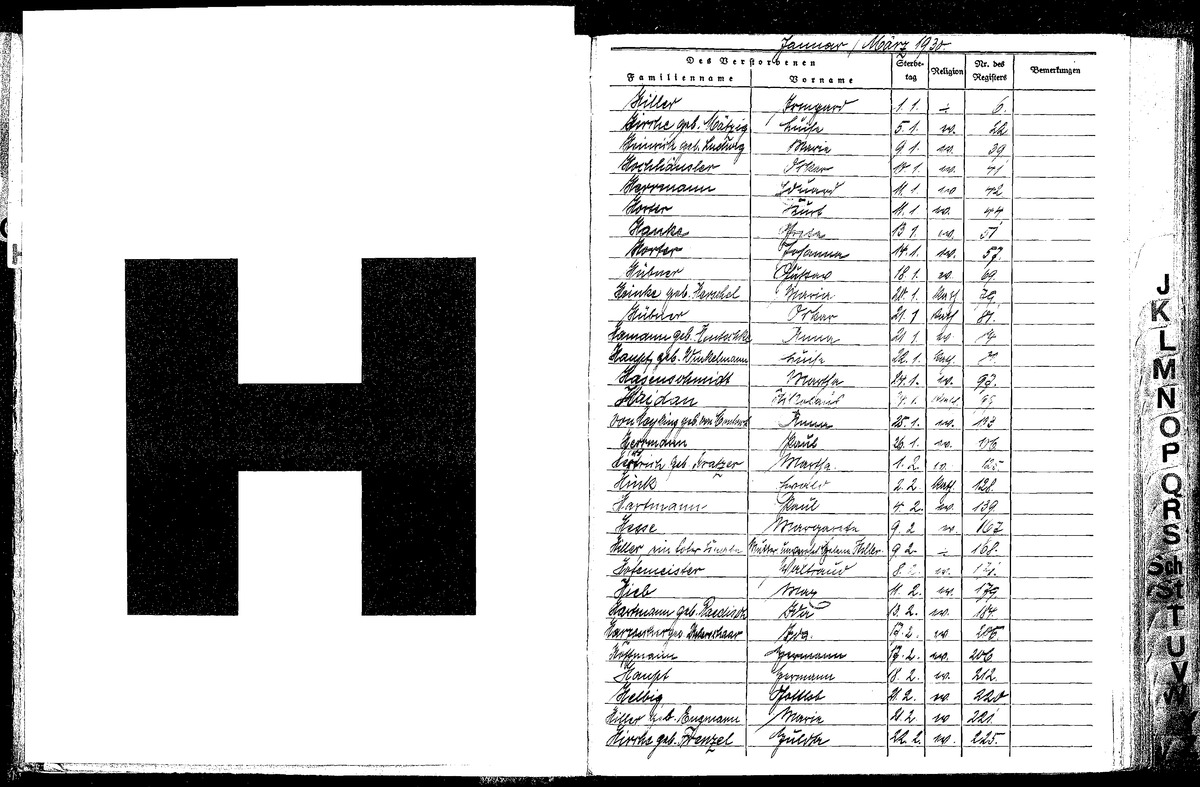 H
Januar / März 1930
Des Verstorbenen
Familienname Vorname Sterbe-tag Religion Nr. des Registers Bemerkungen
Hiller Irmgard 1.1. 6.
Hirche geb. Luise 5.1. ev. 22
Heinrich geb. Ludwig Maria 9.1. ev. 39
Hochhäusler Oskar ev. 41
Herrmann Eduard 11.1 ev 42
Horter Kurt 11.1 ev. 44
Hanke 13.1. ev. 51
Horter Johanna 14.1. ev. 57.
Hübner Gustav 18.1. ev. 69.
Heinke geb. Herschel Maria 20.1. kath 79.
Hübner Oskar 21.1 kath 81.
geb. Hentschke Anna 21.1 ev.
Haupt geb. Winkelmann Luise 22.1. kath.
Hasenschmidt Martha 24.1. ev. 93.
Haidan
von geb. von Anna 25.1. ev. 103
Herrmann Paul 26.1. ev. 106
geb. Kratzer Martha 1.2. ev. 125
Hink Ewald 2.2. kath. 128.
Hartmann Paul 4.2. ev. 139
Hesse Margarete 9.2 ev 167
Hiller Mutter Helene Hiller 9.2. 168.
Hofemeister Waltraud 8.2. ev. 171.
Hieb Max 11.2. ev. 179.
Hartmann geb. 13.2. ev. 184.
geb. Ida. 17.2. ev 205.
Hoffmann Hermann 17.2. ev. 206
Haupt Hermann 18.2. ev. 212.
Helbig Gottlob 21.2. ev. 220
Hiller geb. Engmann Maria 21.2. ev 221
Hirche geb. Frenzel Hulda 22.2. ev. 225.
J
K
L
M
N
O
P
Q
R
S
Sch
St
T
U
V
W